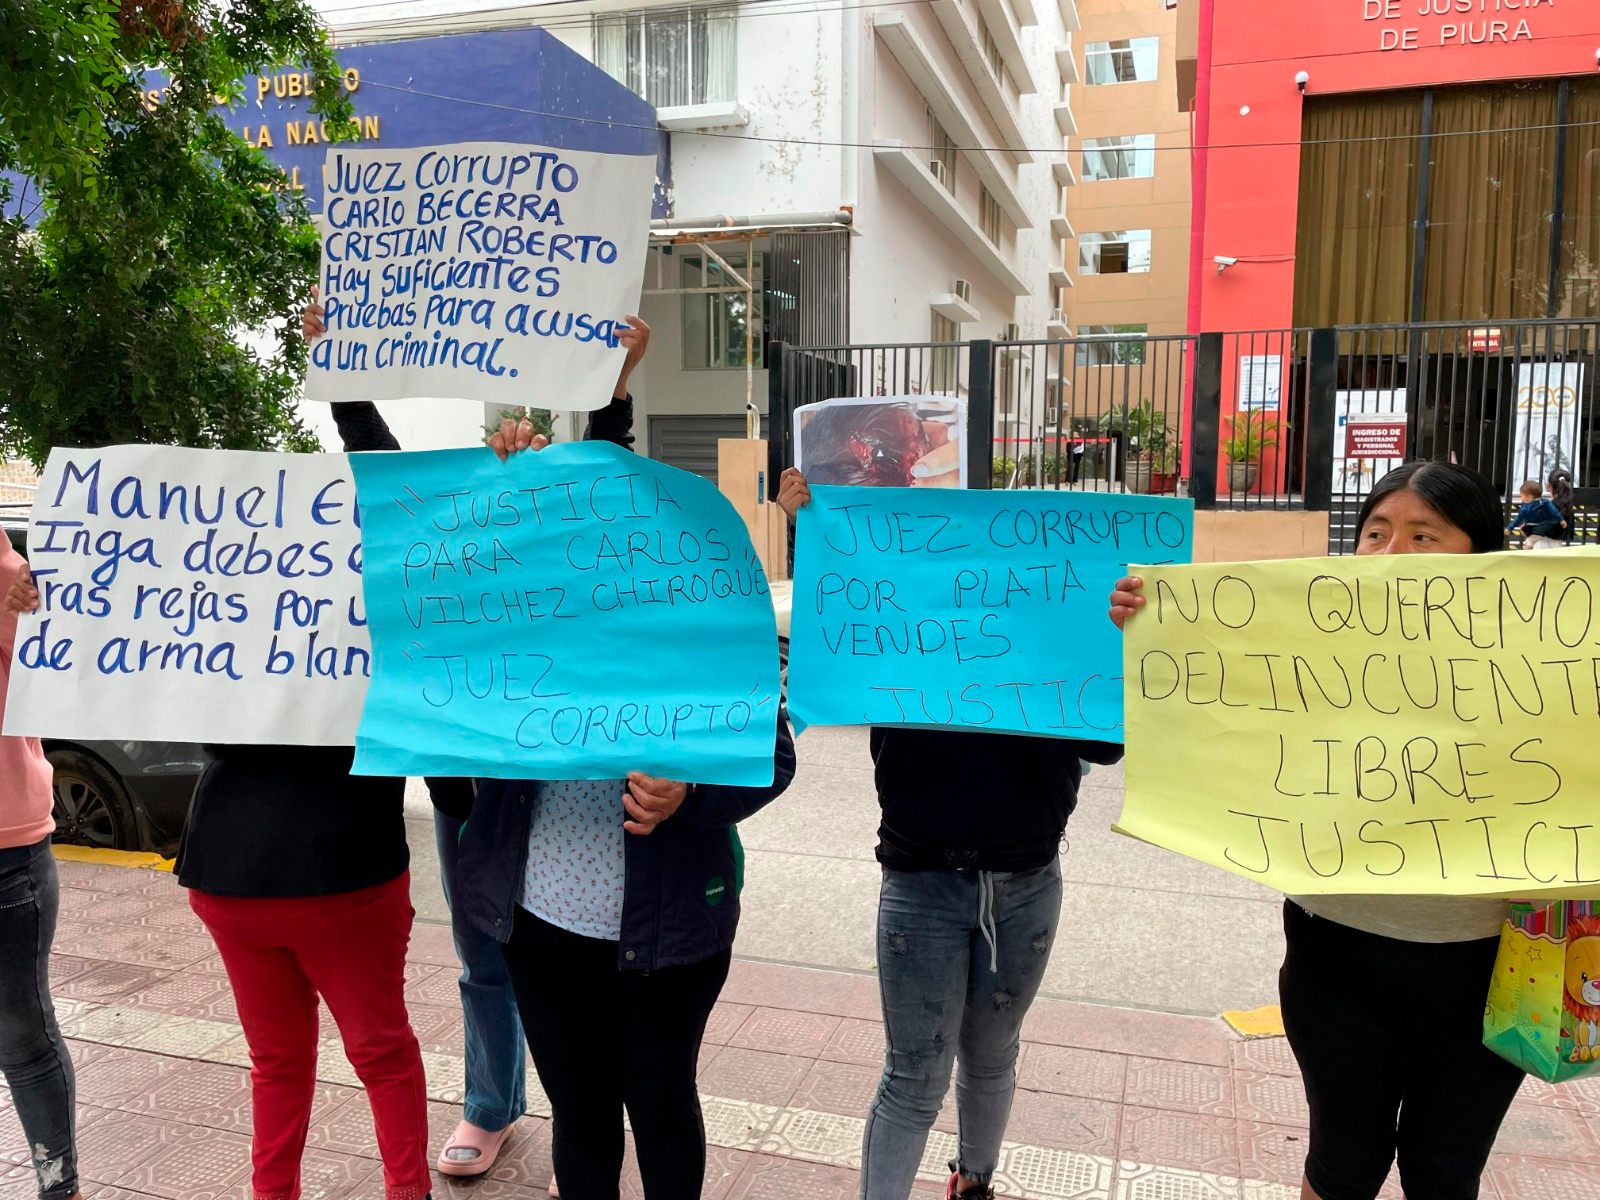 DE JUSTICIA
DE PIURA
PUBLICO
LA NACION
Juez Corrupto
CARLO BECERRA
CRISTIAN ROBERTO
Hay suficientes
Pruebas Para acusar
a un criminal.
Manuel El
Inga debes
Tras rejas por u
de arma blan
"JUSTICIA
PARA CARLOS
VILCHEZ CHIROQUE"
"JUEZ
CORRUPTO"
JUEZ CORRUPTO
POR PLATA
VENDES.
JUSTICI
NO QUEREMOS
DELINCUENTE
LIBRES
JUSTICI
INGRESO DE
MAGISTRADOS
Y PERSONAL
JURISDICCIONAL
200